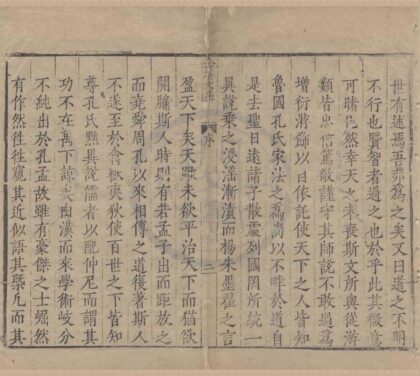 世有述焉吾弗爲之矣又曰道之不明
不行也賢智者過之也於乎此其微意
可睹也然幸天之未喪斯文所與從游
類皆忠信篤敬謹守其師說不敢過爲
增衍飾以日依託使天下之人皆知
魯國孔氏家法之爲尚以不畔於道自
是去聖日遠諸子散處列國罔所統一
異說乘之浸淫漸漬而楊朱墨翟之言
序
二
盈天下矣天未欲平治天下而猶欲
開牖斯人時則有若孟子出而距放之
而堯舜周孔以來相傳之道復著斯人
不遂至於禽獸夷狄使百世之下皆知
尊孔氏黜異說儒者以配仲尼而謂其
功不在禹下諒矣由漢而來學術岐分
不純出於孔孟故雖有豪傑之士崛然
有作然往往窺其近似語其槩凡而其